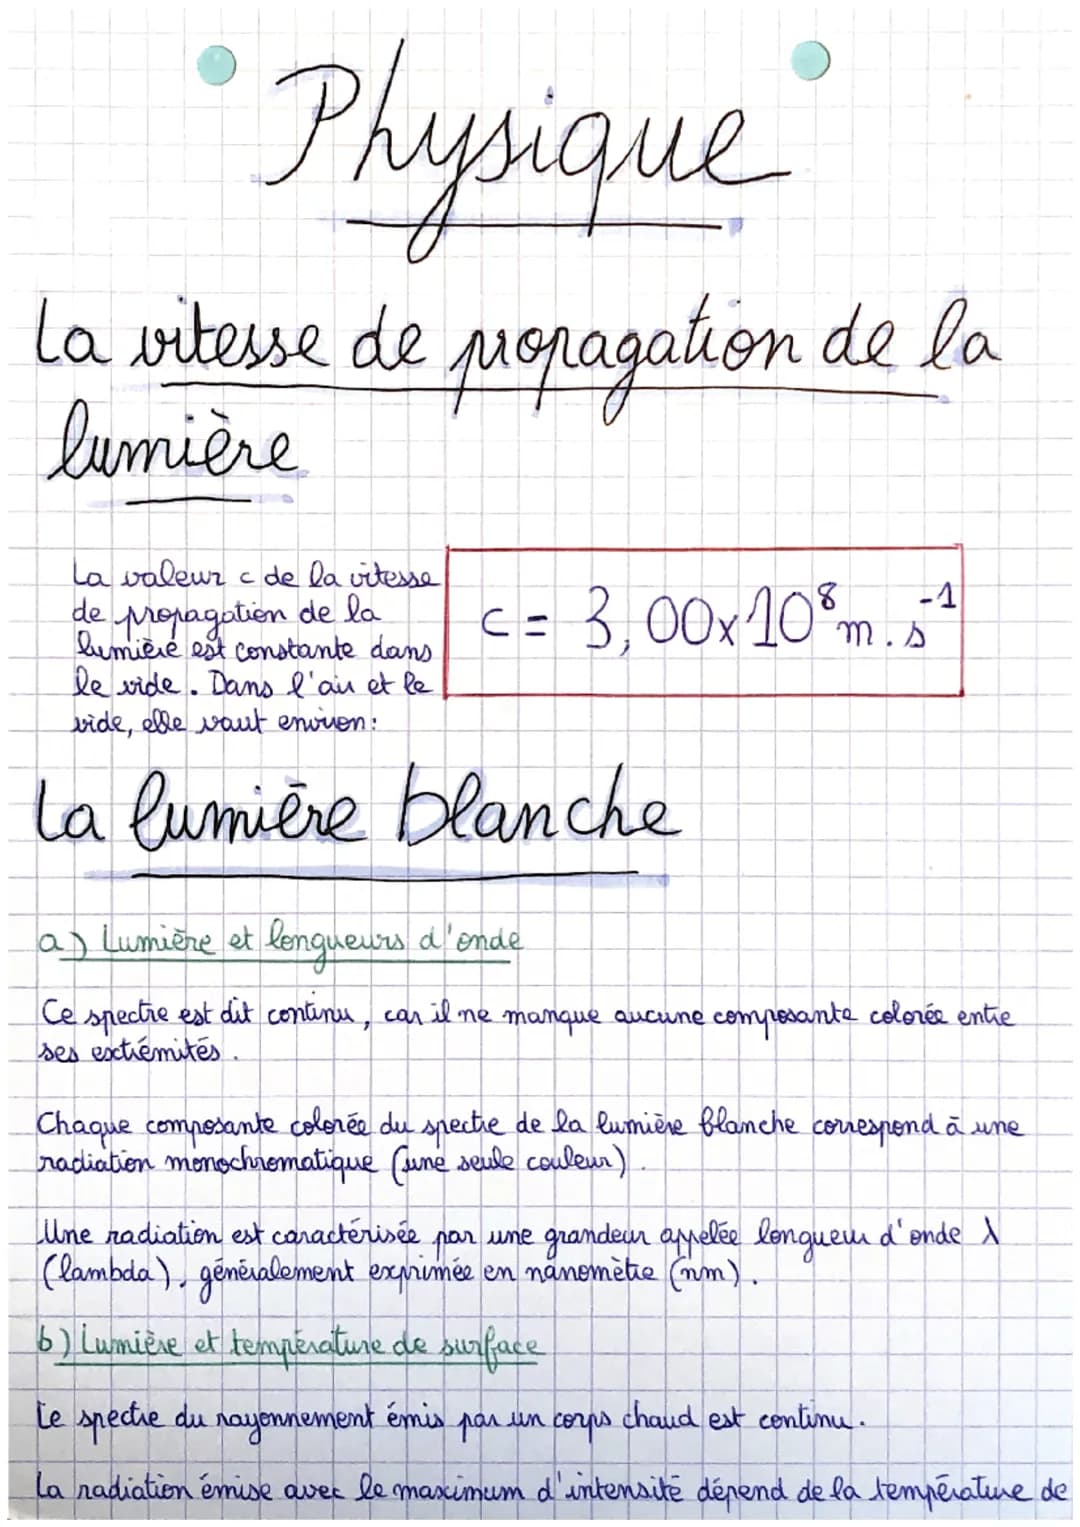 Physique
La vitesse de propagation de la
lumière
La valeur c de la vitesse
de propagation de la
lumière est constante dans
le vide. Dans l'air et le
vide, elle vaut environ:
c = 3,00x10⁸ m.s⁻¹
La lumière blanche
a) Lumière et longueurs d'onde
Ce spectre est dit continu, car il ne manque aucune composante colorée entre
ses extrémités.
Chaque composante colorée du spectre de la lumière blanche correspond à une
radiation monochromatique (une seule couleur).
Une radiation est caractérisée par une grandeur appelée longueur d'onde λ
(lambda), généralement exprimée en nanomètre (nm).
b) Lumière et température de surface
Le spectre du rayonnement émis par un corps chaud est continu.
La radiation émise avec le maximum d'intensité dépend de la température de